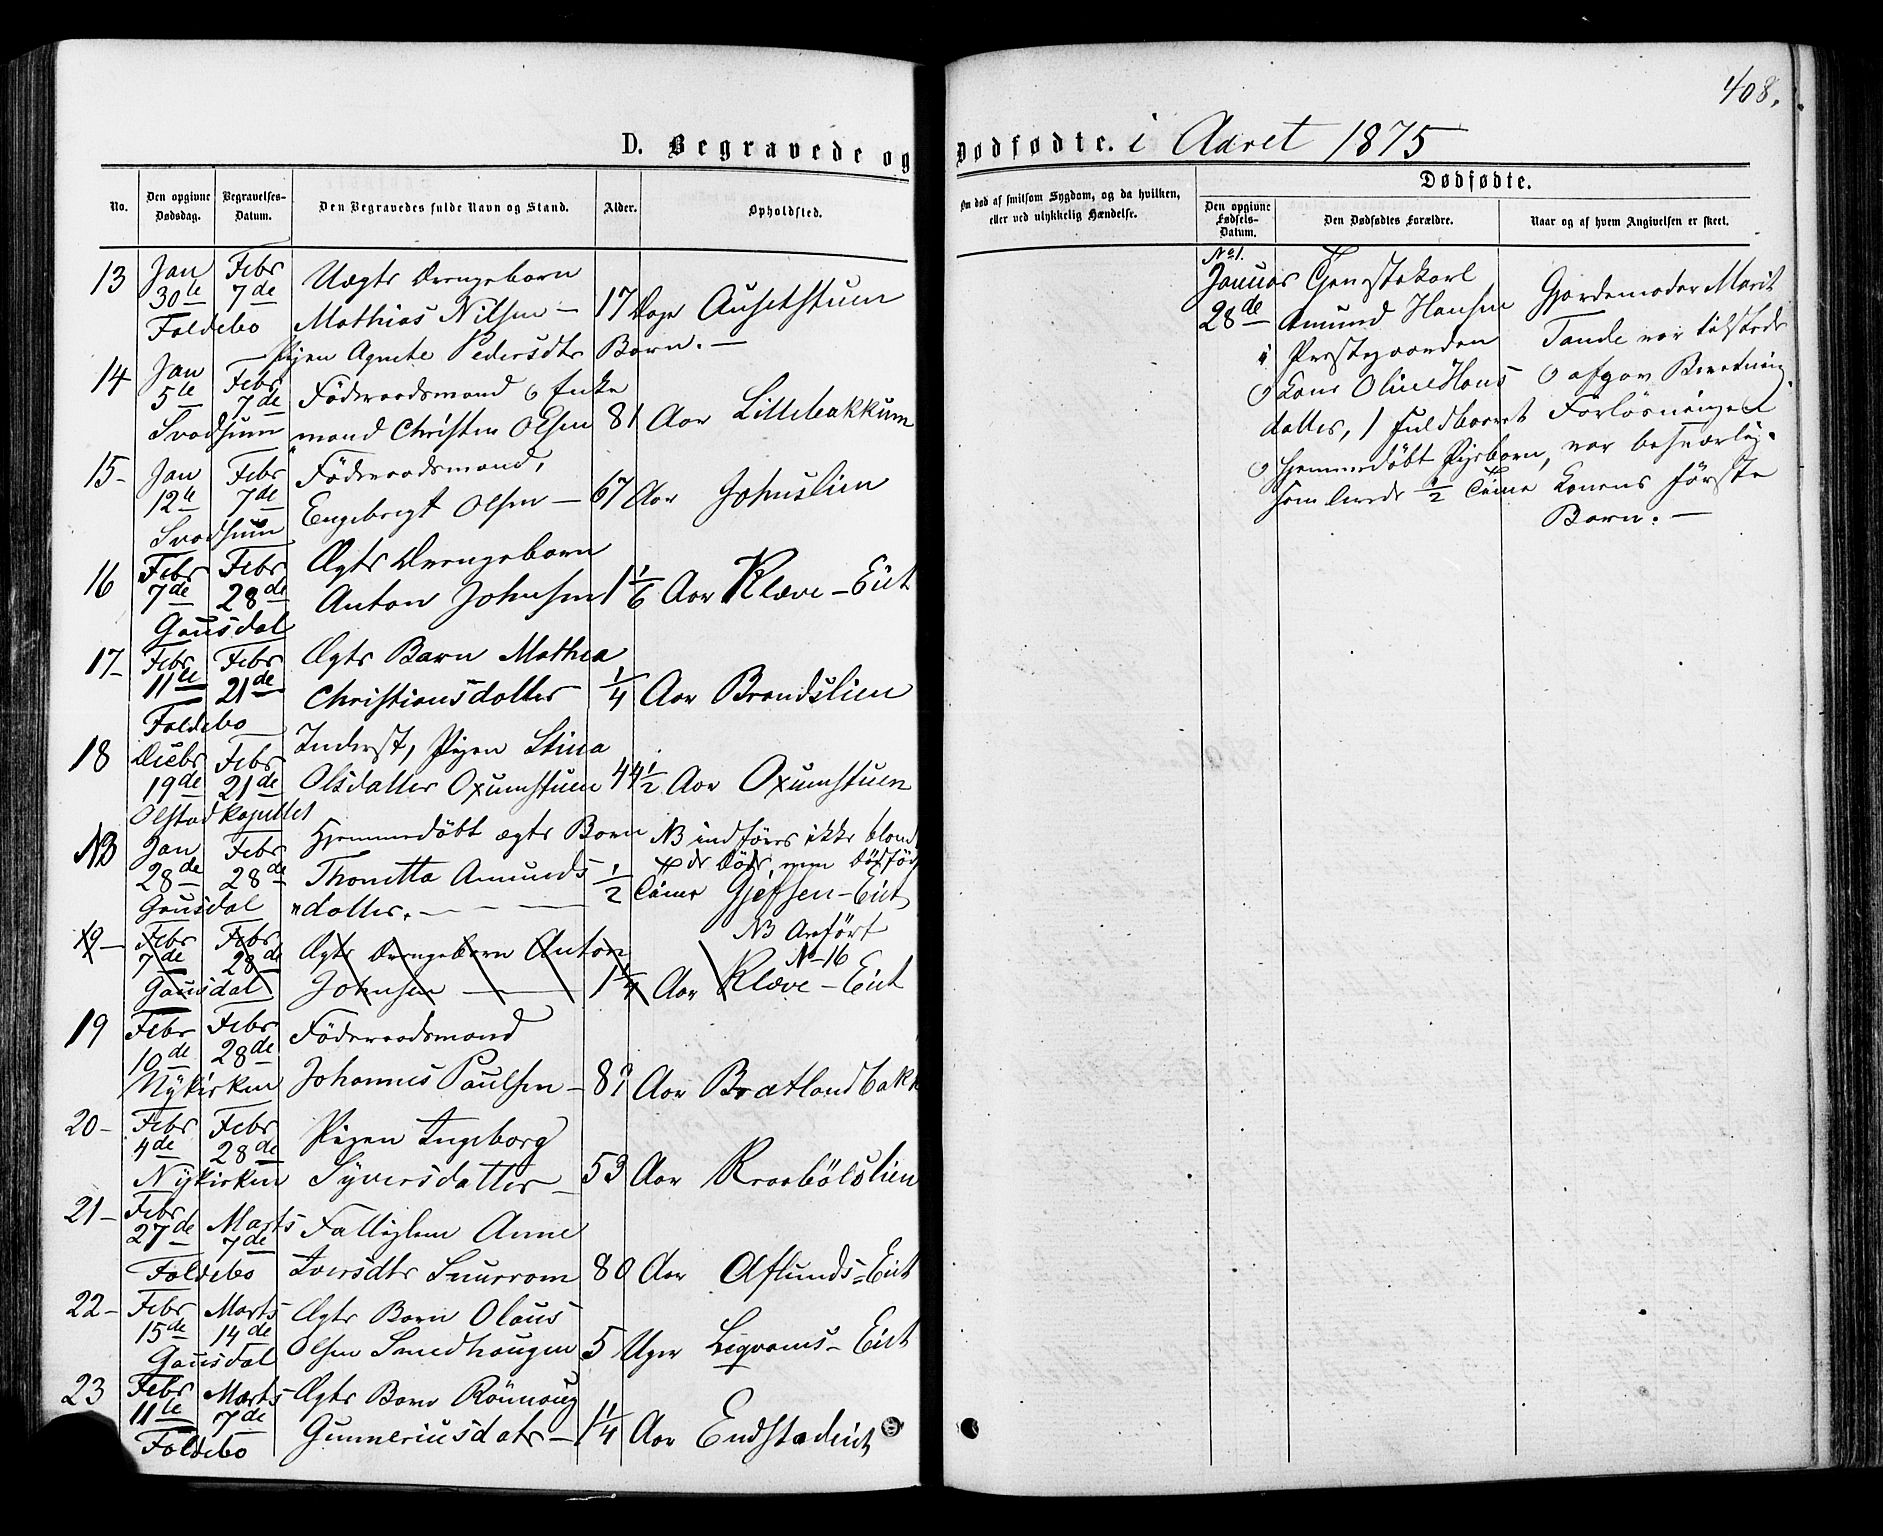 408.
D. Begravede og Dødfødte. i Aaret 1875
No.
Den opgivne Dødsdag.
Begravelses-Datum.
Den Begravedes fulde Navn og Stand.
Alder.
Opholdsted.
Om død af smitsom Sygdom, og da hvilken,
eller ved ulykkelig Hændelse.
Dødfødte.
Den opgivne Fødsels-Datum.
Den Dødfødtes Forældre.
Naar og af hvem Angivelsen er skeet.
13 Jan 30te Febr 7de Uægte Drengebarn
Mathias Nilsen – 17 Dage Ausetstuen
Foldebo Pigen Agnete Pedersdtr Barn. –
14 Jan 5te Febr 7de Föderaadsmand o Enke
Svadsum mand Christen Olsen 81 Aar Lillebakkum
15 – Jan 12te Febr 7de Föderaadsmand,
Svadsum Engebrigt Olsen – 67 Aar Johnslien
16 Febr 7de Febr 28de Ægte Drengebarn
Anton Johnsen 1 1/6 Aar Kleve – Eiet
Gausdal
17 – Febr 11te Febr 21de Ægte Barn Mathea
Christiansdatter 1/4 Aar Brandslien
Foldebo
18 Decbr 19de Febr 21de Inderst, Pigen Stina
Olsdatter Oxumstuen 44 1/2 Aar Oxumstuen
Olstad kapellet
NB Jan 28de Febr 28de Hjemmedöbt ægte Barn NB indföres ikke bland
Thonetta Amunds 1/2 Time de Döde, men Dödföd
Gausdal datter. – Gjefsen – Eiet
NB Anfört
No 16
19 – Febr 7de Febr 28de Ægte Drengebarn Anton
Gausdal Johnsen 1 1/4 Aar Kleve – Eiet
19 Febr 10de Febr 28de Föderaadsmand
Nykirken Johannes Paulsen – 89 Aar Brætlandbakk
20 – Febr 4de Febr 28de Pigen Ingeborg
Nykirken Syversdatter – 53 Aar Kraaböls lien
21 – Febr 27de Marts 7de Fattiglem Anne
Foldebo Iversdtr Snurrom 80 Aar Aflunds = Eiet
22 – Febr 15de Marts 14de Ægte Barn Olaus
Gausdal Olsen Smedhaugen 5 Uger Liqvams – Eiet
23 Febr 11te Marts 7de Ægte Barn Rönnaug
Foldebo Gunneriusdatr – 1 1/4 Aar Endstadeiet
No 1.
Januar 28de
Tjenstekarl
Amund Hansen
i Prestegaarden
o Kone Oline Hans
datter, 1 fuldbaaret
o hjemmedöbt Pigebarn,
som levede 1/2 Time
Gjordemoder Marit
Tande var tilstede
o afgav Beretning
Forlösninget
var besværlig.
Konens förste
Barn. –